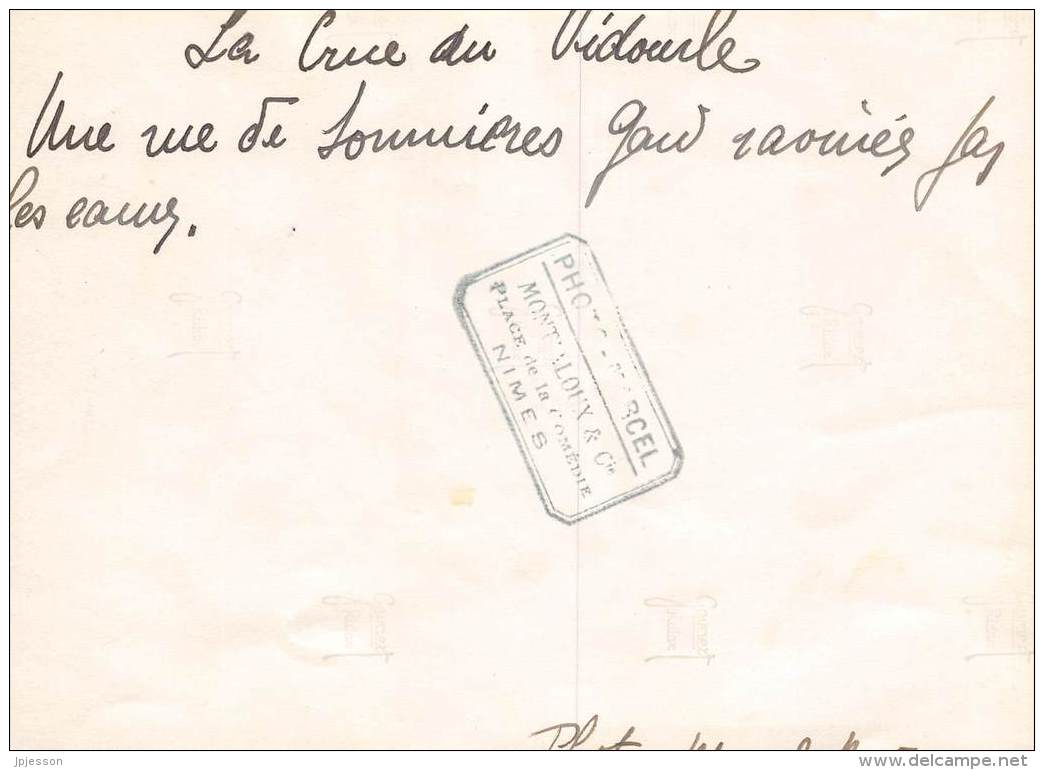 La Crue du Vidourle
Une rue de Sommières Gard ravinée par
les eaux.
PHOTO MARCEL
& Cie
PLACE de la COMÉDIE
NIMES
Photo
jpjesson
www.delcampe.net